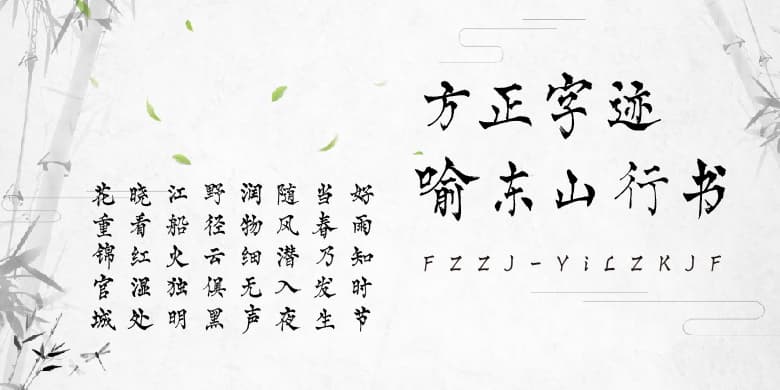 方正字迹
喻东山行书
FZZJ-YiLZKJF
好雨知时节
当春乃发生
随风潜入夜
润物细无声
野径云俱黑
江船火独明
晓看红湿处
花重锦官城